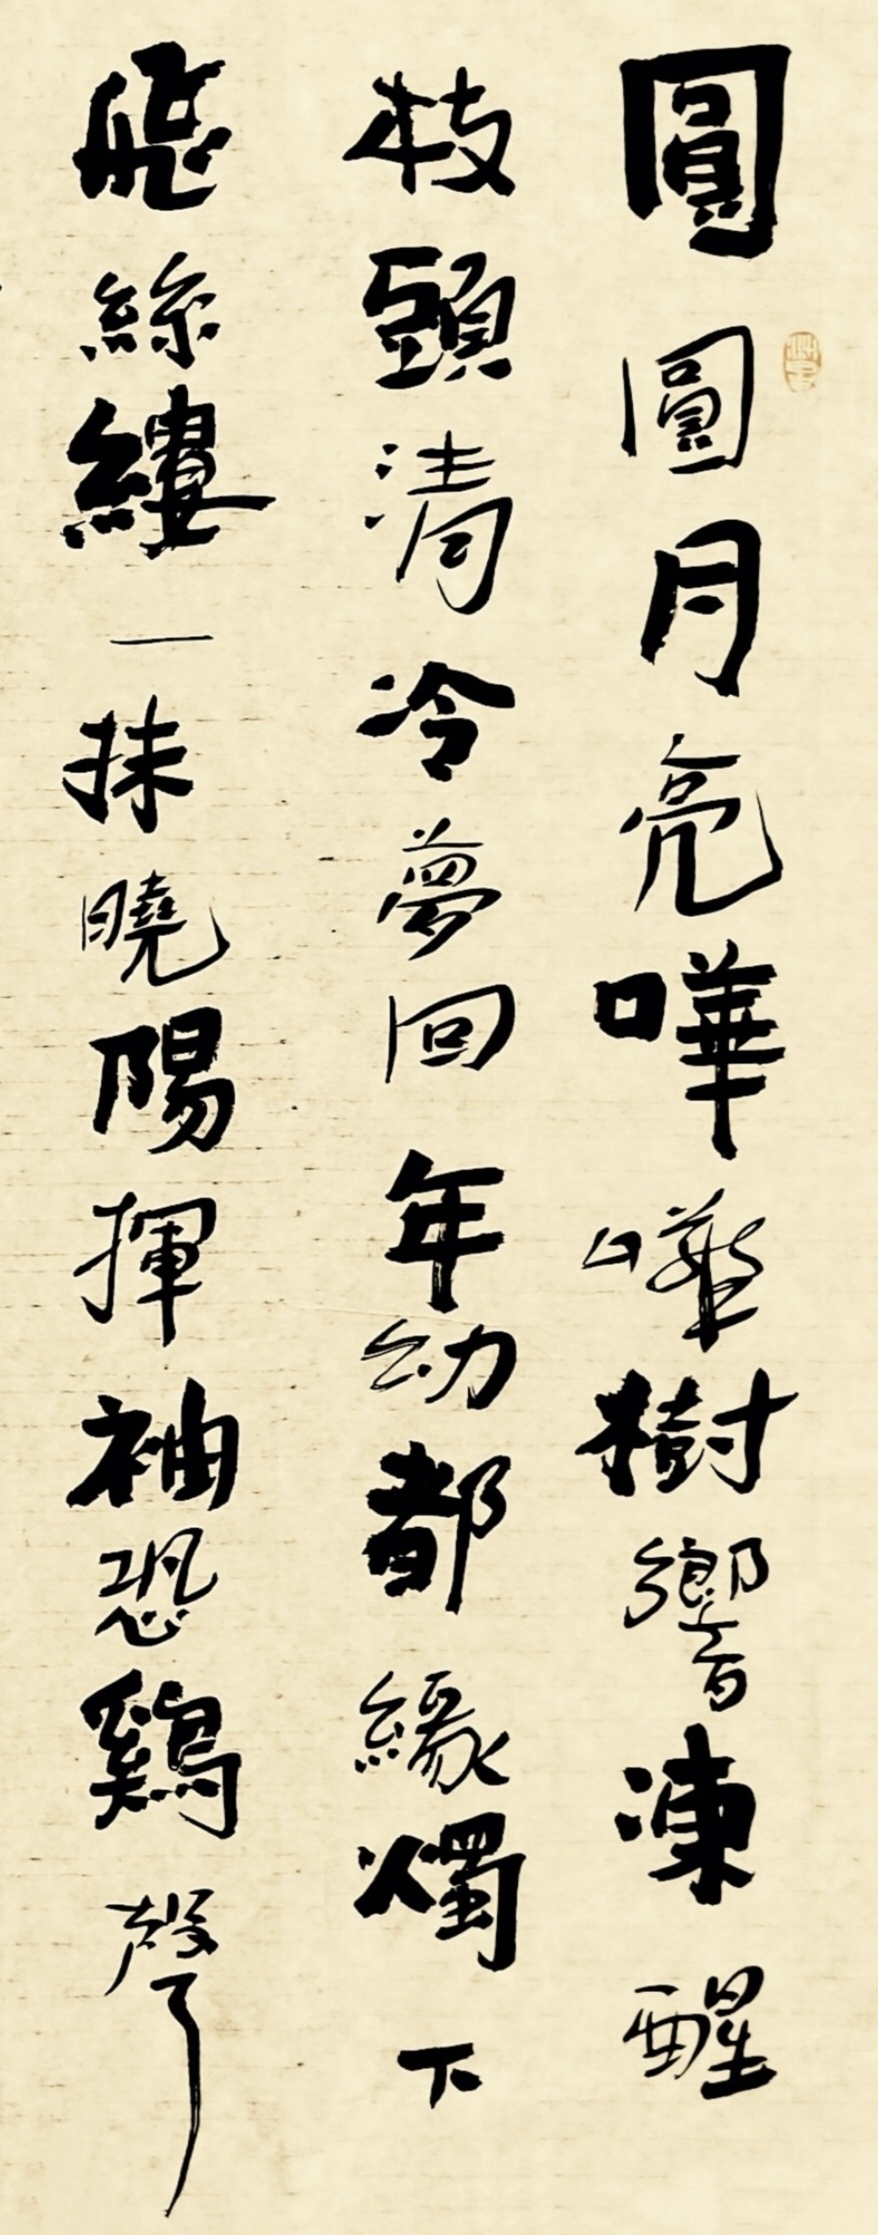 圓圓月亮嘩嘩樹響凍醒
枝頭清冷夢回年幼都緣燭下
飛絲縷一抹曉陽揮袖恐鷄聲